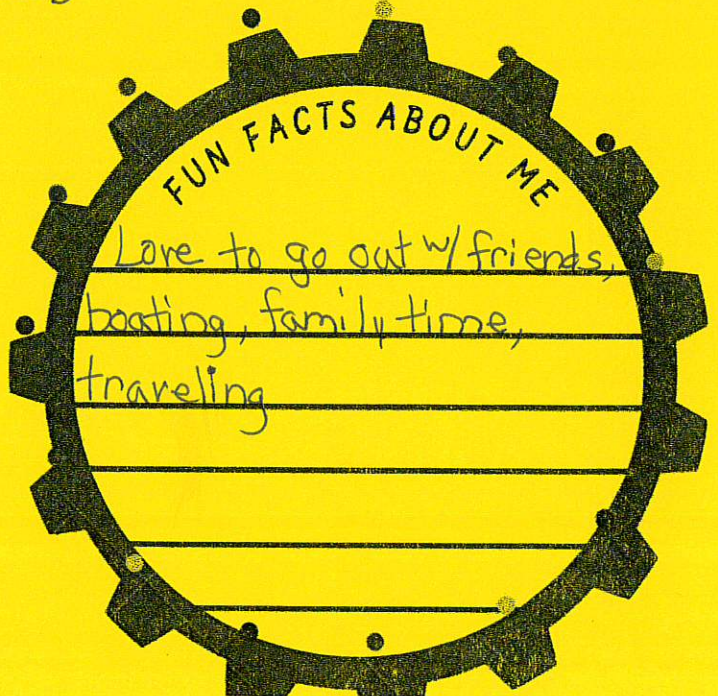 FUN FACTS ABOUT ME
Love to go out w/ friends,
boating, family time,
traveling